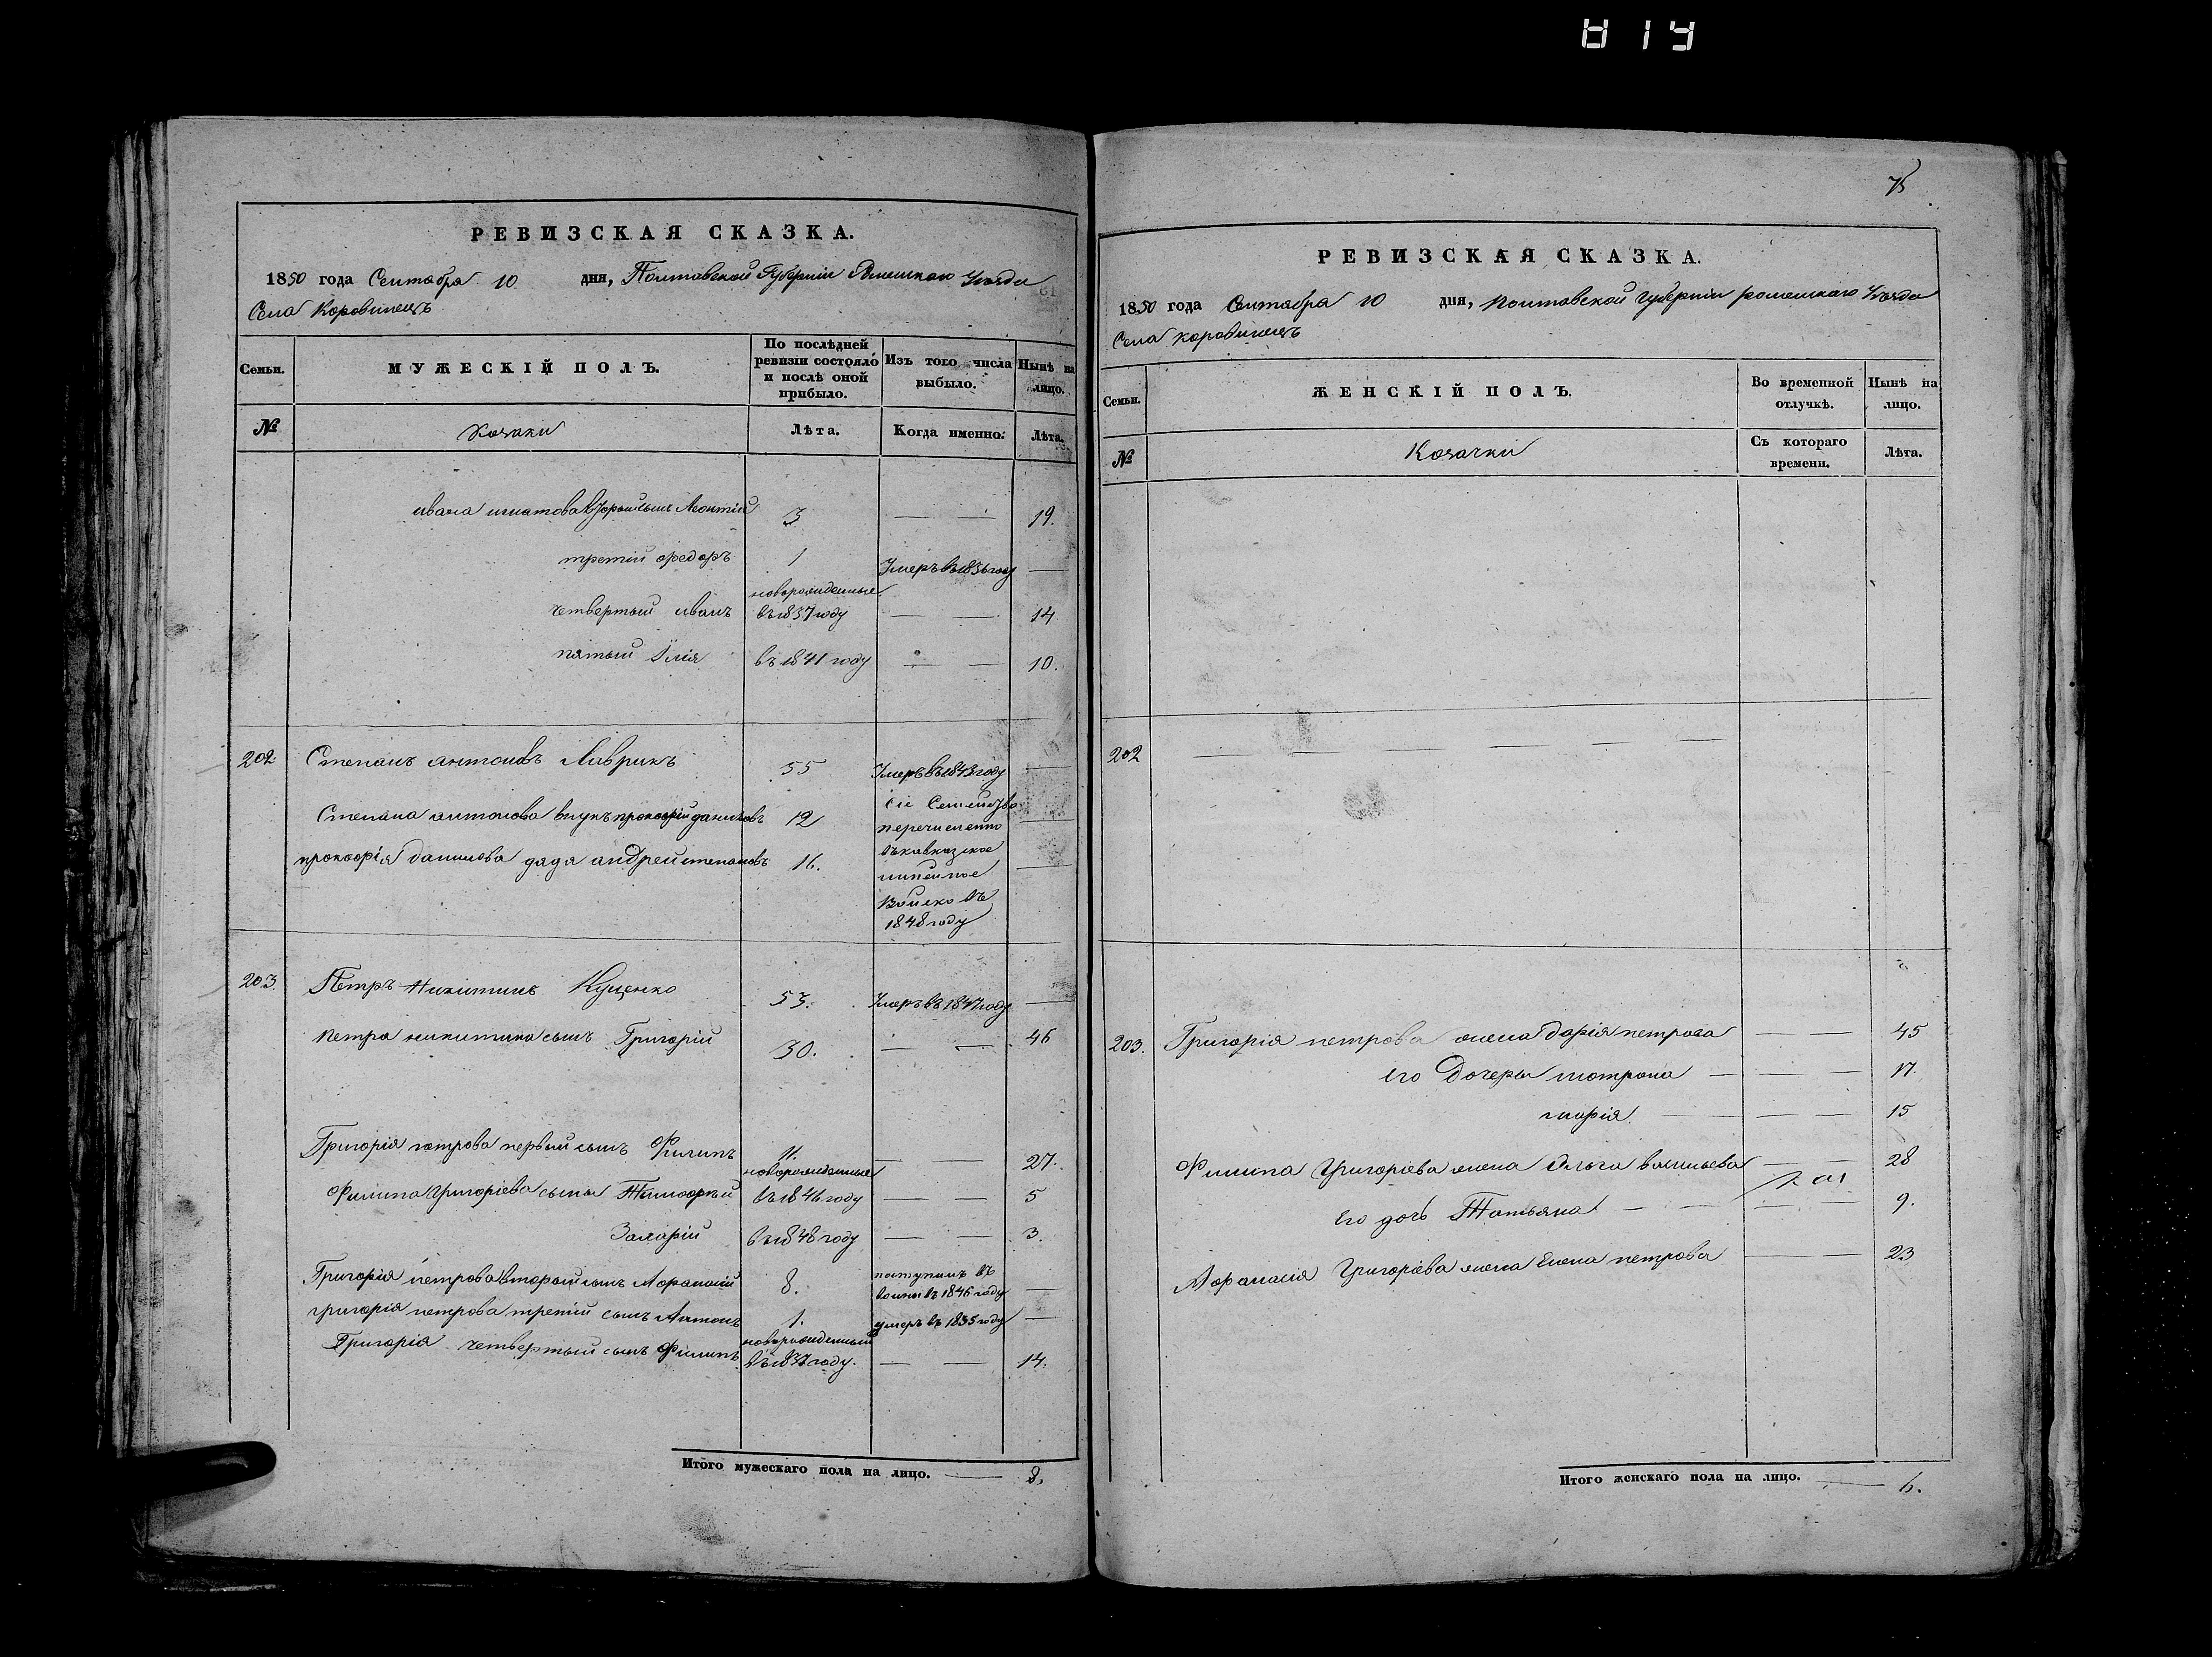 819
РЕВИЗСКАЯ СКАЗКА.
1850 года Сентября 10 дня, Полтавской Губерніи Роменскаго Уѣзда
Села Коровинецъ
Семьи.
МУЖЕСКІЙ ПОЛЪ.
По послѣдней ревизіи состояло и послѣ оной прибыло.
Изъ того числа выбыло.
Нынѣ на лицо.
№
Козаки
Лѣта.
Когда именно.
Лѣта.
ивана игнатова вторый сынъ Леонтій 3 — — 19.
третій федоръ 1 Умеръ въ 1836 году —
новорожденные
четвертый иванъ въ 1837 году — — 14
пятый Илія въ 1841 году — — 10.
202 Степанъ антоновъ Лаврикъ 55 Умеръ въ 1843 году —
Степана антонова внукъ прокофій даниловъ 12 —
прокофія данилова дядя андрей степановъ 16. —
сіе Семейство
перечисленно
въ кавказское
линейное
Войско въ
1848 году
203. Петръ Никитинъ Куценко 53. Умеръ въ 1847 году —
Петра никитина сынъ Григорій 30. — — 46
Григорія петрова первый сынъ Филипъ 11. — — 27.
новорожденные
Филипа Григоріева сыны Тимофѣй въ 1846 году — — 5
Захарій въ 1848 году — — 3.
Григорія петрова вторый сынъ Афанасій 8. поступилъ въ —
воины въ 1846 году
григорія петрова третій сынъ Антонъ 1. умеръ въ 1835 году —
новорожденный
Григорія четвертый сынъ Филипъ въ 1837 году. — — 14.
Итого мужескаго пола на лицо. — 8,
75
РЕВИЗСКАЯ СКАЗКА.
1850 года Сентября 10 дня, полтавской губерніи роменскаго Уѣзда
Села коровинецъ
Семьи.
ЖЕНСКІЙ ПОЛЪ.
Во временной отлучкѣ.
Нынѣ на лицо.
№
Козачки
Съ котораго времени.
Лѣта.
202 — — — — — —
203. Григорія петрова жена дарія петрова — — 45
его Дочеры мотрона — — — 17.
марія — — — 15
Филипа Григоріева жена Ольга васильева — — 28
его дочь Татьяна — — — 9.
Афанасія Григоріева жена Елена петрова — — 23
Итого женскаго пола на лицо. — 6.